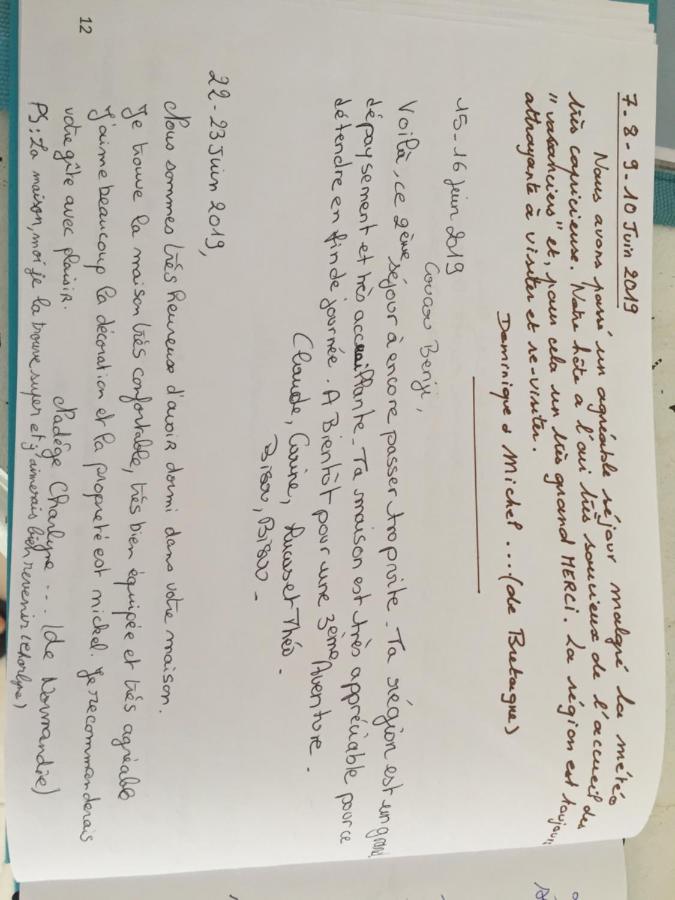 7-8-9-10 Juin 2019
Nous avons passé un agréable séjour malgré la météo
très capricieuse. Notre hôte a l'oui très soucieux de l'accueil des
"vacanciers" et, pour cela un très grand MERCI. La région est toujours
attrayante à visiter et re-visiter.
Dominique et Michel ... (de Bretagne)
15-16 juin 2019
Coucou Benji,
Voilà, ce 2ème séjour à encore passer trop vite. Ta région est un grand
dépaysement et très accueillante. Ta maison est très appréciable pour ce
détendre en fin de journée. A Bientôt pour une 3ème Aventure.
Claude, Carine, Lucas et Théo.
Bisou, Bisou.
22-23 Juin 2019,
Nous sommes très heureux d'avoir dormi dans votre maison.
Je trouve la maison très confortable, très bien équipée et très agréable
J'aime beaucoup la décoration et la propreté est mickel. Je recommanderais
votre gîte avec plaisir.
Nadège Charlyne ... (de Normandie)
PS: La maison, moi je la trouve super et j'aimerais bien revenir (Charlyne)
12